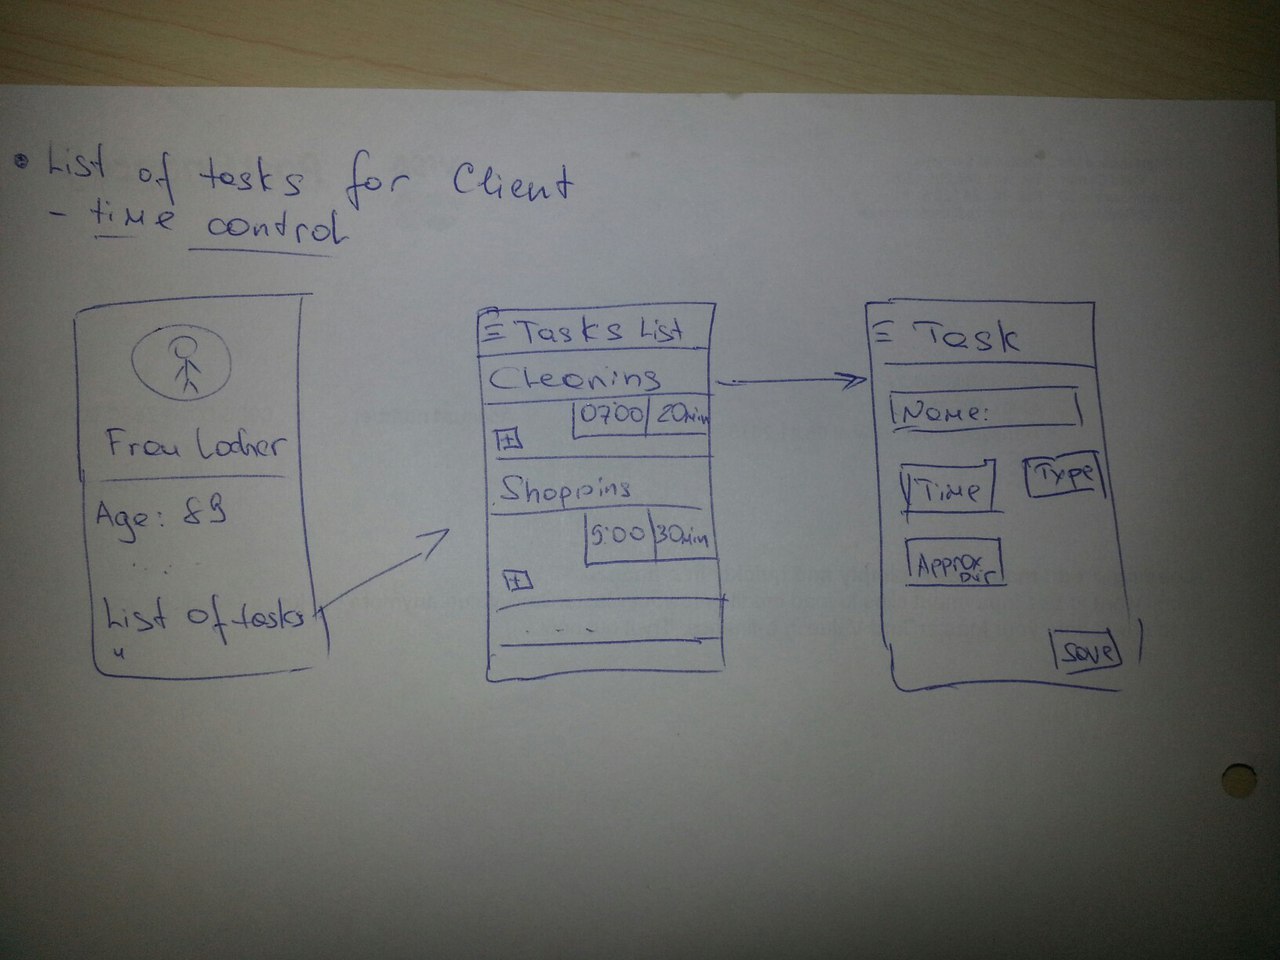 • List of tasks for Client
- time control
Frau Lodner
Age: 89
. . . .
List of tasks
"
≡ Tasks List
Cleaning
07:00 20min
+
Shopping
9:00 30min
+
. - -
≡ Task
Name:
Time
Type
Approx
Dur
Save